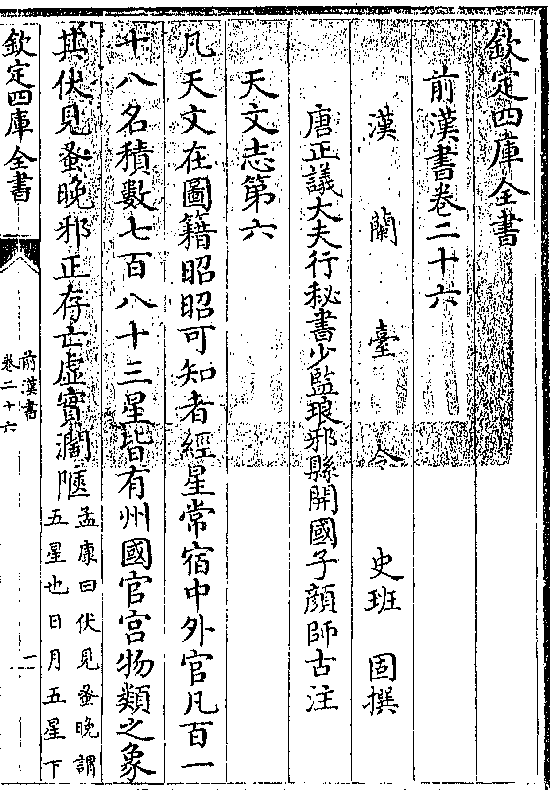 欽定四庫全書
前漢書卷二十六
漢蘭臺令史班固撰
唐正議大夫行秘書少監琅邪縣開國子顔師古注
天文志第六
凡天文在圖籍昭昭可知者經星常宿中外官凡百一
十八名積數七百八十三星皆有州國官宮物類之象
其伏見蚤晚邪正存亡虛實濶陿
孟康曰伏見蚤晚謂
五星也日月五星下
欽定四庫全書
前漢書
卷二十六
一